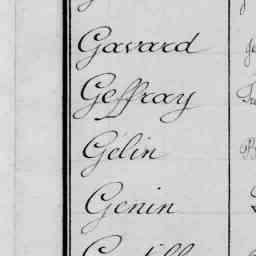 Gavard
Geffray
Gélin
Genin